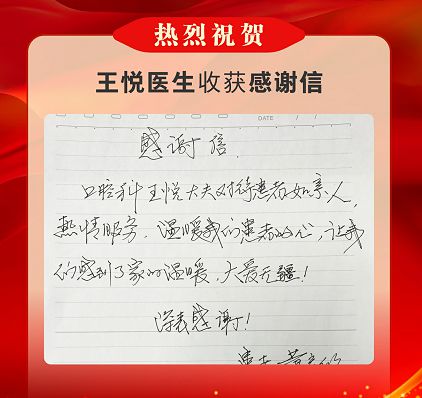 热烈祝贺
王悦医生收获感谢信
DATE
感谢信
口腔科王悦大夫对待患者如亲人,
热情服务.温暖我的患者的心,让我
的感到了家的温暖,大爱无疆!
深表感谢!
患者:黄